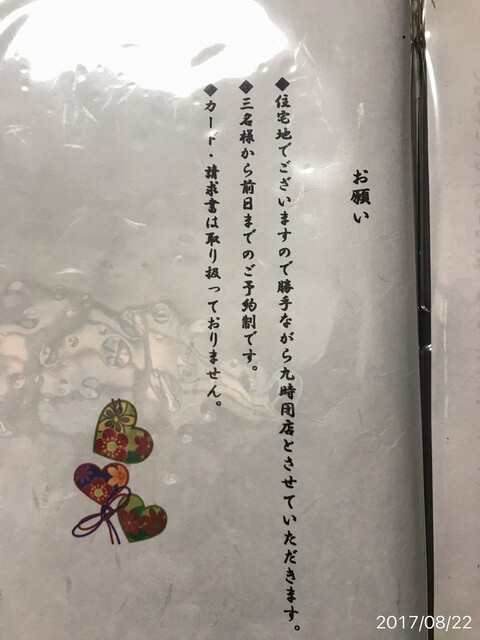 お願い
◆住宅地でございますので勝手ながら九時閉店とさせていただきます。
◆三名様から前日までのご予約制です。
◆カード・請求書は取り扱っておりません。
2017/08/22